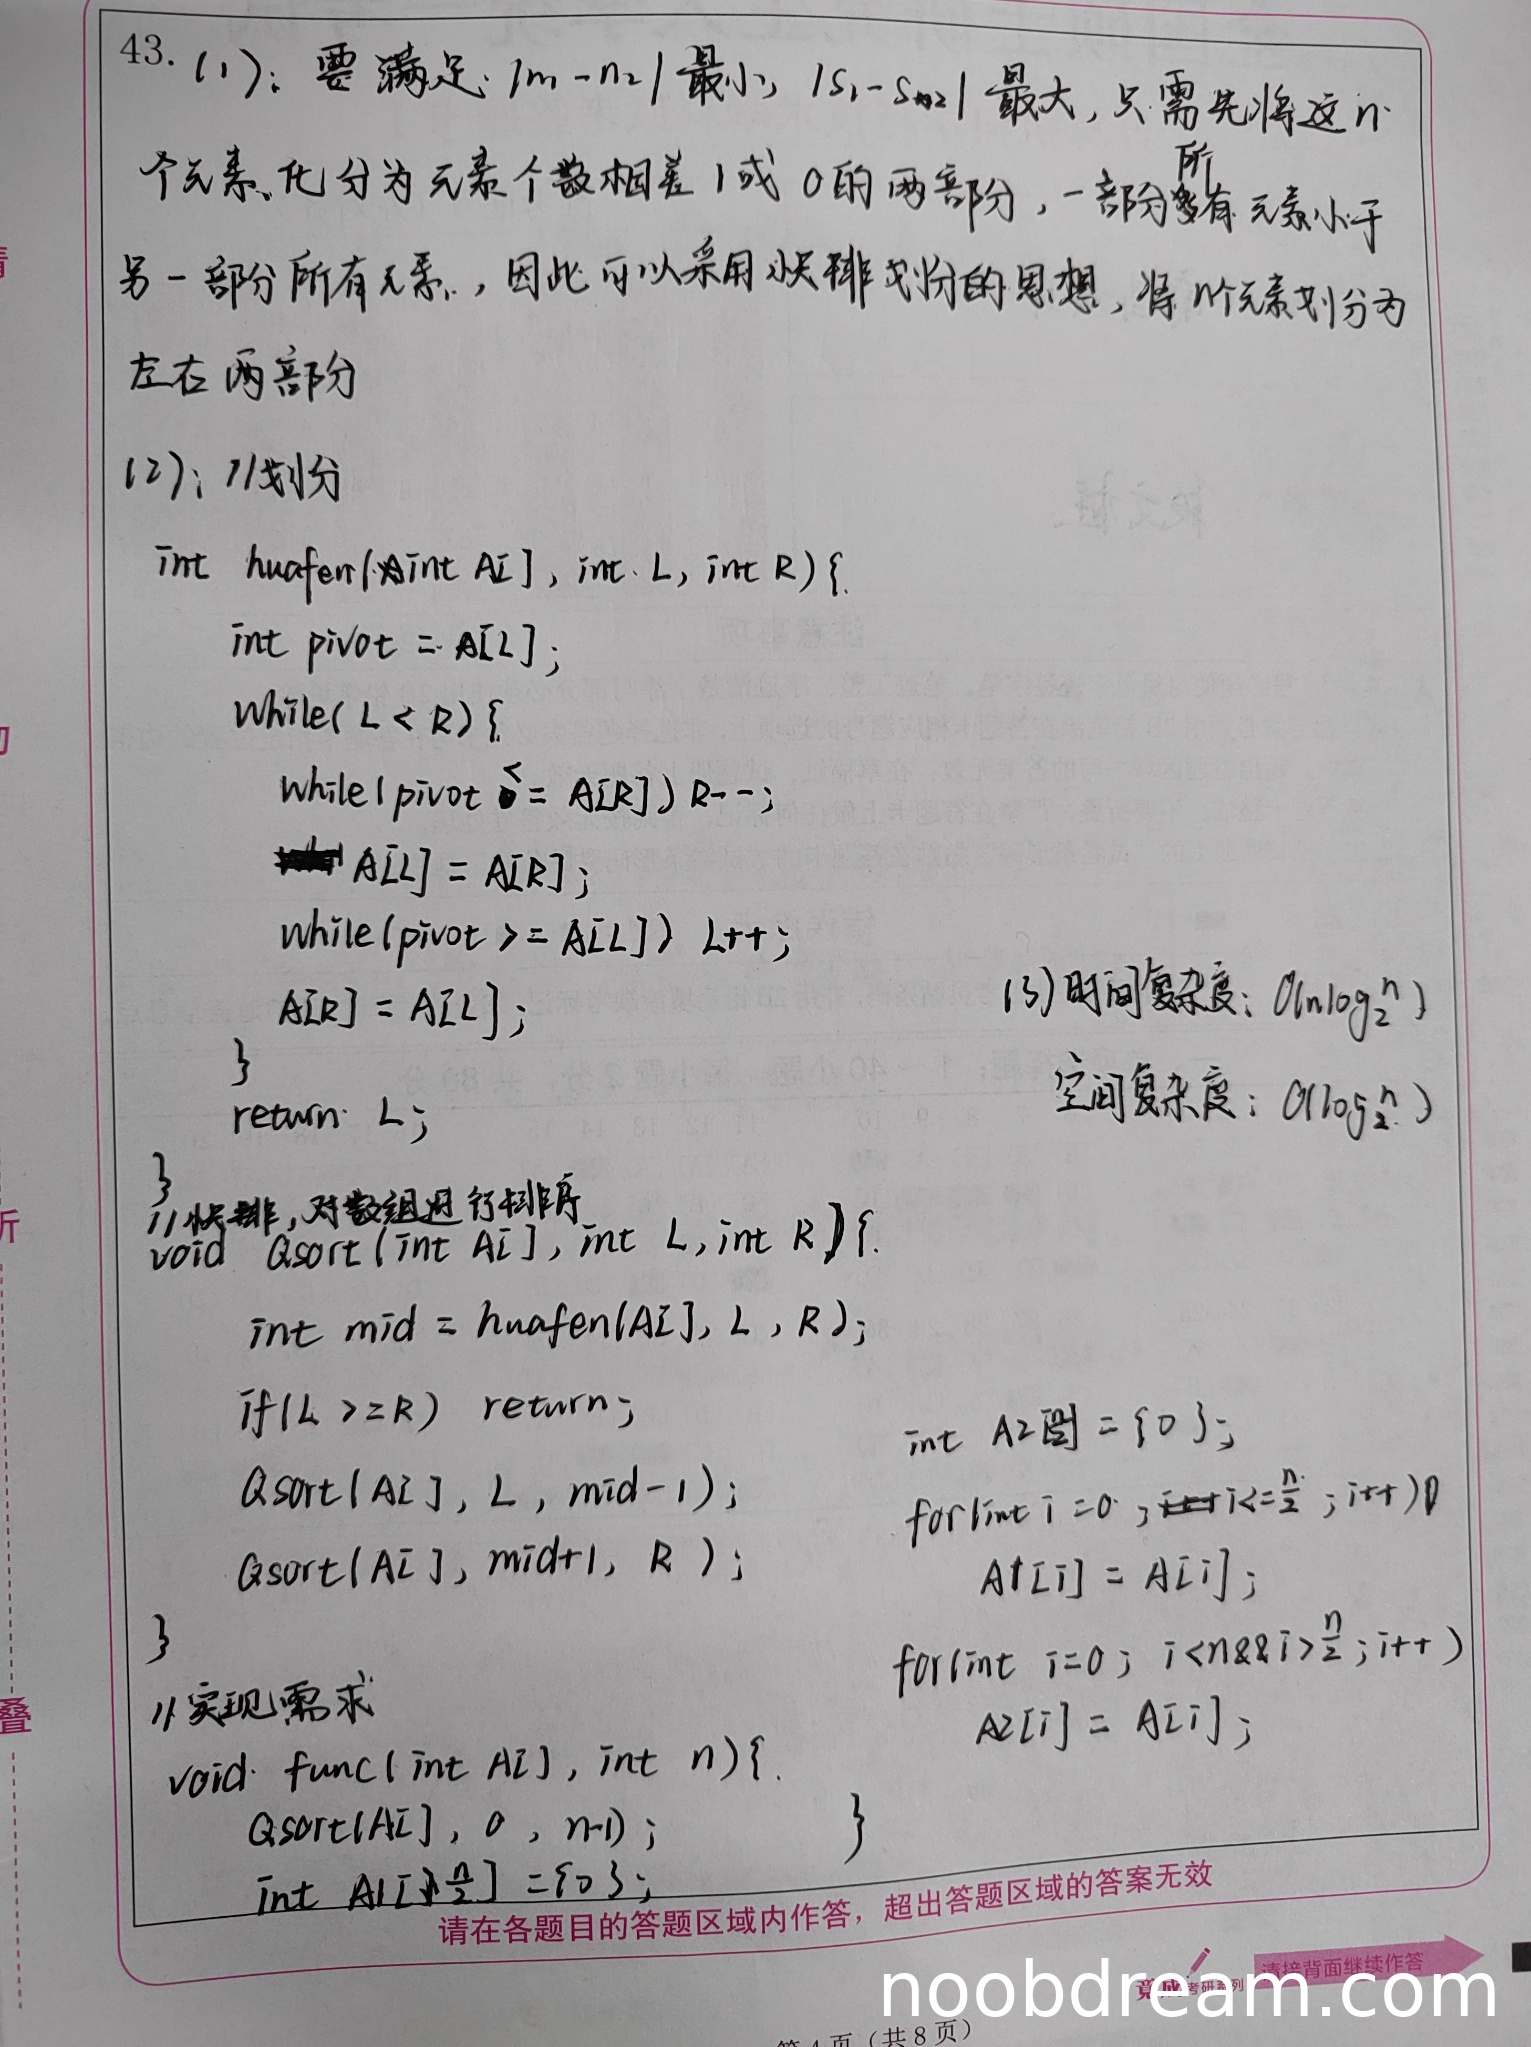 43. (1): 要满足: |n₁-n₂|最小, |S₁-S₂|最大, 只需先将这n
个元素、化分为元素个数相差1或0的两部分, 一部分所有元素小于
另一部分所有元素, 因此可以采用快排划分的思想, 将n个元素划分为
左右两部分
(2): //划分
int huafen(int A[], int L, int R){
int pivot = A[L];
while( L < R){
while(pivot <= A[R]) R--;
A[L] = A[R];
while(pivot >= A[L]) L++;
A[R] = A[L];
}
return L;
}
//快排, 对数组进行排序
void Qsort(int A[], int L, int R){
int mid = huafen(A[], L, R);
if(L >= R) return;
Qsort(A[], L, mid-1);
Qsort(A[], mid+1, R);
}
//实现需求
void func(int A[], int n){
Qsort(A[], 0, n-1);
int A1[n/2] = {0};
(3)时间复杂度: O(nlog₂n)
空间复杂度: O(log₂n)
int A2 = {0};
for(int i=0; i<=n/2; i++)
A1[i] = A[i];
for(int i=0; i<n&&i>n/2; i++)
A2[i] = A[i];
}
请在各题目的答题区域内作答，超出答题区域的答案无效
竟成考研系列
请接背面继续作答
第4页（共8页）
noobdream.com